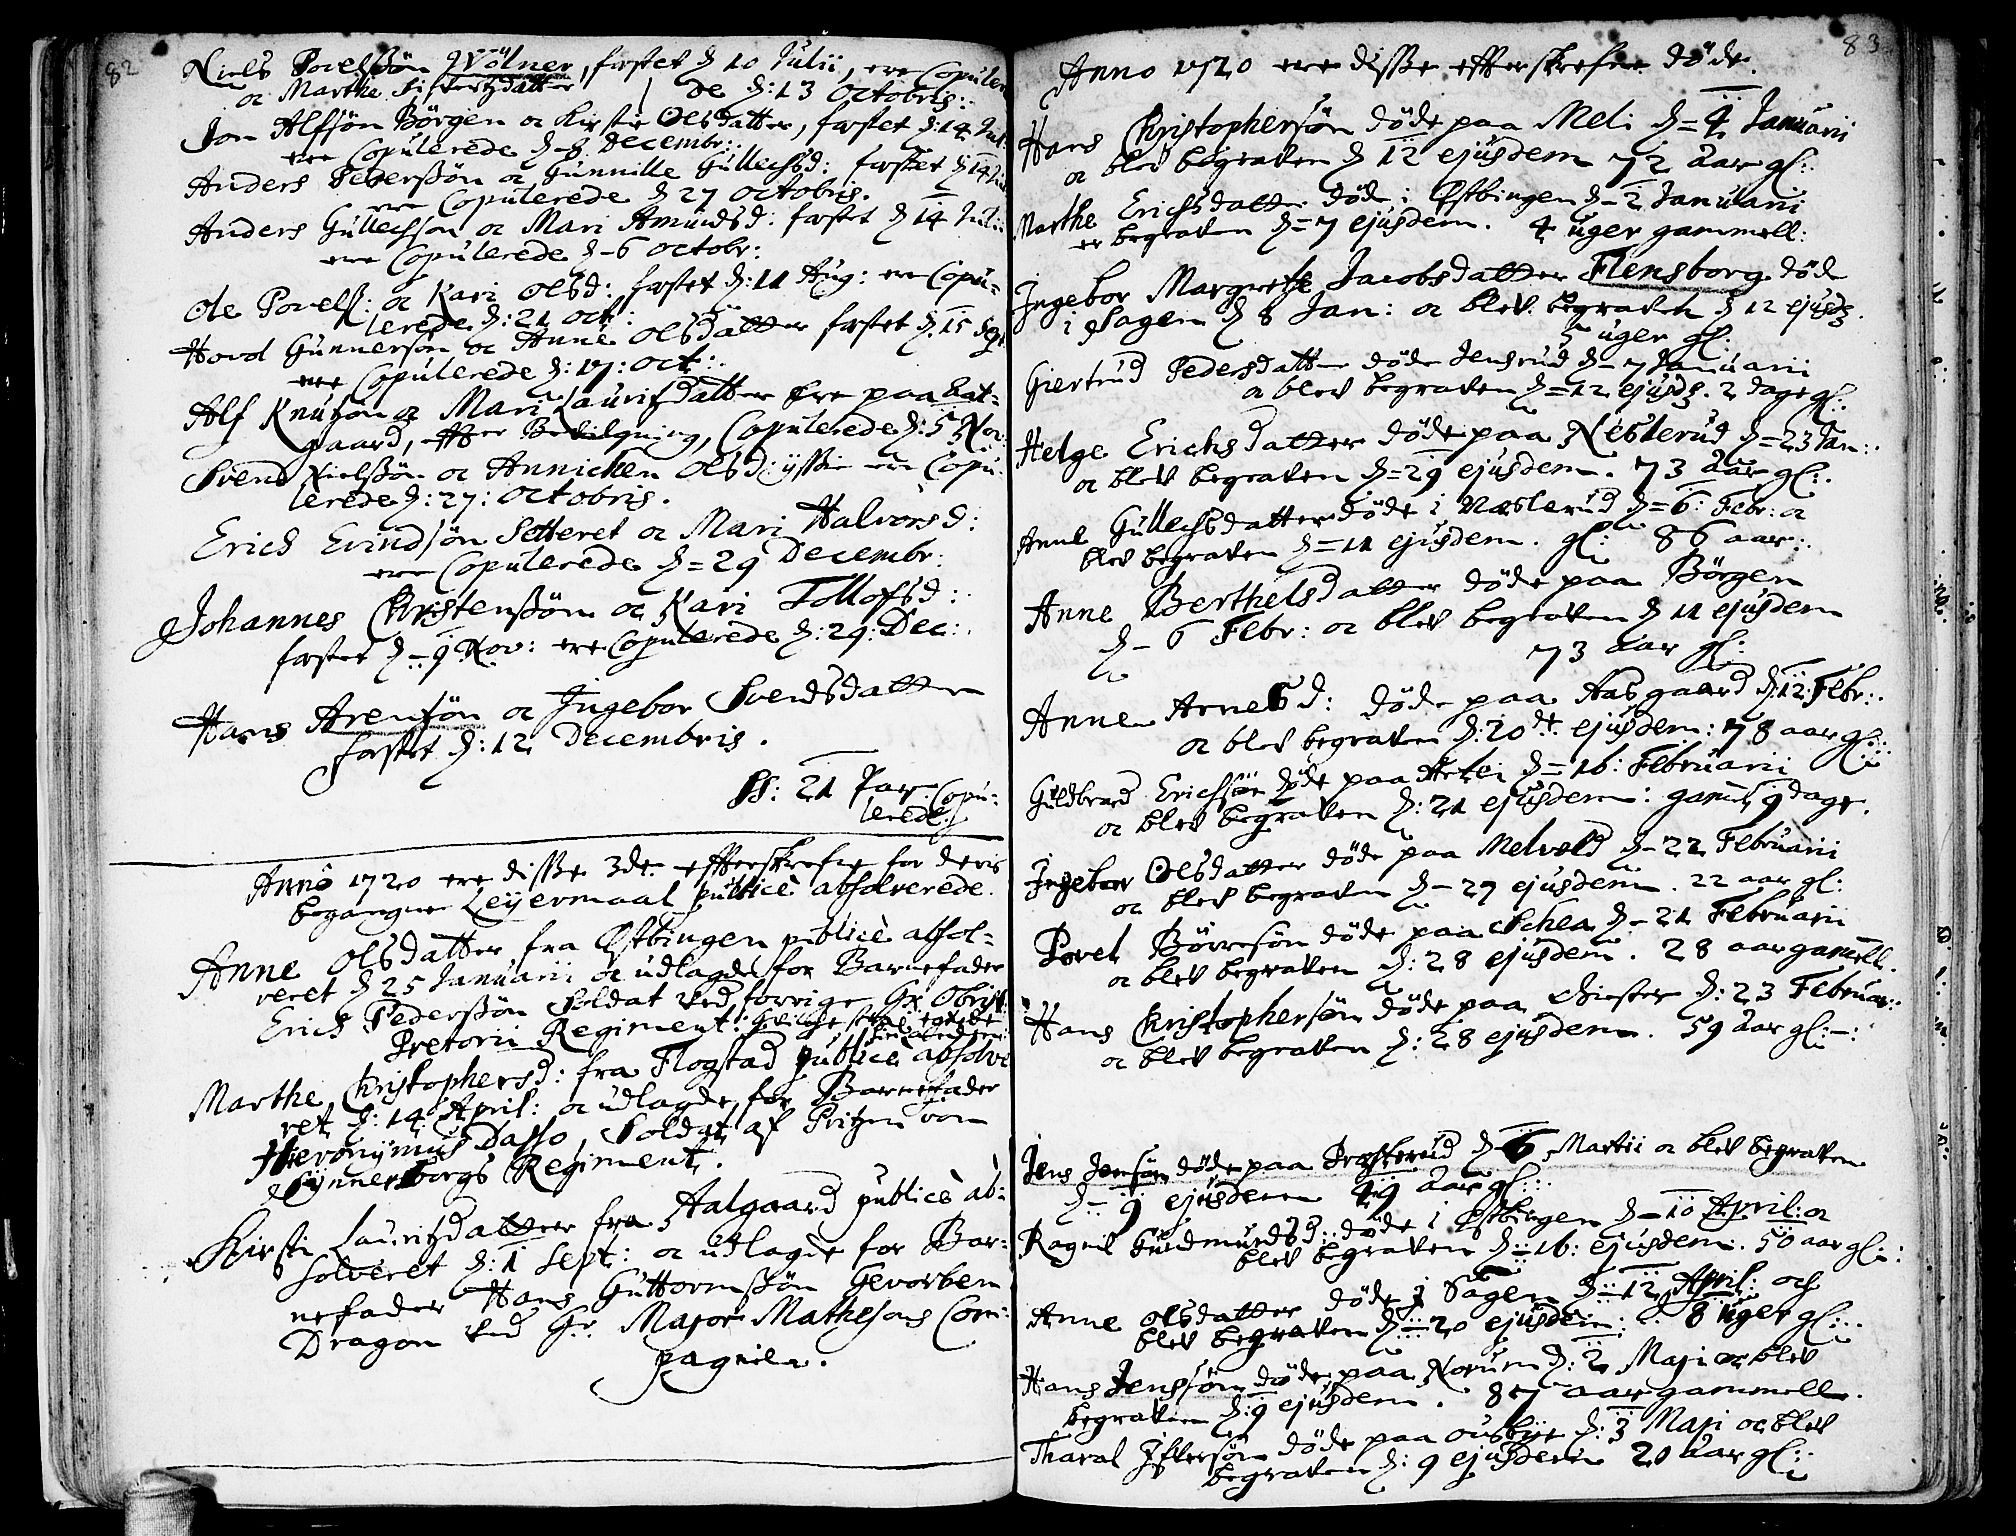 82
Niels Povelssøn Wölner, festet d 10 Julii, ere Copule
oc Marthe Sifertzdatter / de d: 13 Octobris:
Jon Alfsøn Börgen oc Kirstie Olsdatter, festet d: 14 Jul:
ere Copulerede d 8 Decembr:
Anders Pederssøn oc Gunnille Gullechsd: festet d 14 Jul
ere Copulerede d 27 Octobris.
Anders Gullechsson oc Mari Amundsd: festet d 14 Julii
ere Copulerede d - 6 Octobr:
Ole Povelss: oc Kari Olsd: festet d: 11 Aug: ere Copu-
lerede d: 21 Oct:
Hovel Gunnersøn oc Anne Olsdatter festet d. 15 Sept
ere Copulerede d: 17: Oct:
Alf Knutsøn oc Mari Lauritzdatter ere paa Aal-
gaard, effter Bevilgning, Copulerede d: 5 Nov:
Svend Nielssøn oc Annichen Olsd: ere Copu-
lerede d: 27: Octobris.
Erich Evindsøn Setteret oc Mari Halvorsd:
ere Copulerede d = 29 Decembr:
Johannes Christenssøn oc Kari Tollofsd:
festet d - 9 Nov: ere Copulerede d: 29: Dec:
Hans Arensøn oc Ingebor Svendsdatter
festet d: 12 Decembris.
S: 21 Par Copu-
lerede.
Anno 1720 ere disse 3de effterskrefne for deris
begangne Leyermaal publicè absolverede.
Anne Olsdatter fra Østbingen publicè absol-
veret d 25 Januarii oc udlagde for Barnefader
Erich Pederssøn Soldat ved forrige Hr Obrist
Pretorii Regiment:
Marthe Christophersd: fra Flogstad publicè absolve
ret d: 14 April: oc udlagde for Barnefader
Hieronymus Dasso, Soldat af Pritzen von
Regiment.
Kirsti Lauritzdatter fra Aalgaard publicè ab-
solveret d: 1 Sept: oc udlagde for Bar-
nefader Hans Guttormssøn Gevorben
Dragon ved Hr. Major Mathesons Com-
pagnie.
83
Anno 1720 ere disse effterskrefne døde.
Hans Christophersøn døde paa Meli d = 4 Januarii
oc blev begraven d 12 ejusdem 72 aar gl:
Marthe Erichsdatter døde i Østbingen d - 2 Januarii
er begraven d = 7 ejusdem. 4 uger gammell:
Ingebor Margrethe Jacobsdatter Flensborg døde
i Sagen d 8 Jan: oc blev begraven d 12 ejusd
5 uger gl:
Giertrud Pedersdatter døde Jensrud d - 7 Januarii
oc blev begraven d = 12 ejusd. 2 dage gl:
Helge Erichsdatter døde paa Nesterud d = 23 Jan:
oc blev begraven d = 29 ejusdem. 73 aar gl:
Anne Gullechsdatter døde i Næsterud d = 6: Febr: oc
blev begraven d = 11 ejusdem. gl: 86 aar:
Anne Berthelsdatter døde paa Börgen
d - 6 Febr: oc blev begraven d 11 ejusdem
73 aar gl:
Anne Arnesd: døde paa Aasgaard d: 12 Febr:
oc blev begraven d: 20de ejusdem: 78 aar gl:
Guldbrand Erichsøn døde paa Artei d = 16: Februarii
oc blev begraven d: 21 ejusdem: gamel 9 dage.
Ingebor Olsdatter døde paa Melvold d - 22 Februarii
oc blev begraven d - 27 ejusdem. 22 aar gl:
Povel Børresøn døde paa Schea d - 21 Februarii
oc blev begraven d: 28 ejusdem. 28 aar gamell.
Hans Christophersøn døde paa Diester d: 23 Februar:
oc blev begraven d: 28 ejusdem. 59 aar gl:-:
Jens Jensøn døde paa Presterud d - 6 Martii oc blev begraven
d - 9 ejusdem 49 aar gl:
Ragnil Gudmundsd: døde i Østbingen d = 10 April: oc
blev begraven d = 16: ejusdem. 50 aar gl:
Anne Olsdatter døde i Sagen d = 12 April: och
blev begraven d = 20 ejusdem: 8 uger gl:
Hans Jenssøn døde paa Norum d: 2 Maji oc blev
begraven d: 9 ejusdem. 87 aar gammell.
Tharal Iffversøn døde paa Ousbye d: 3 Maji oc blev
begraven d: 9 ejusdem 20 aar gl: